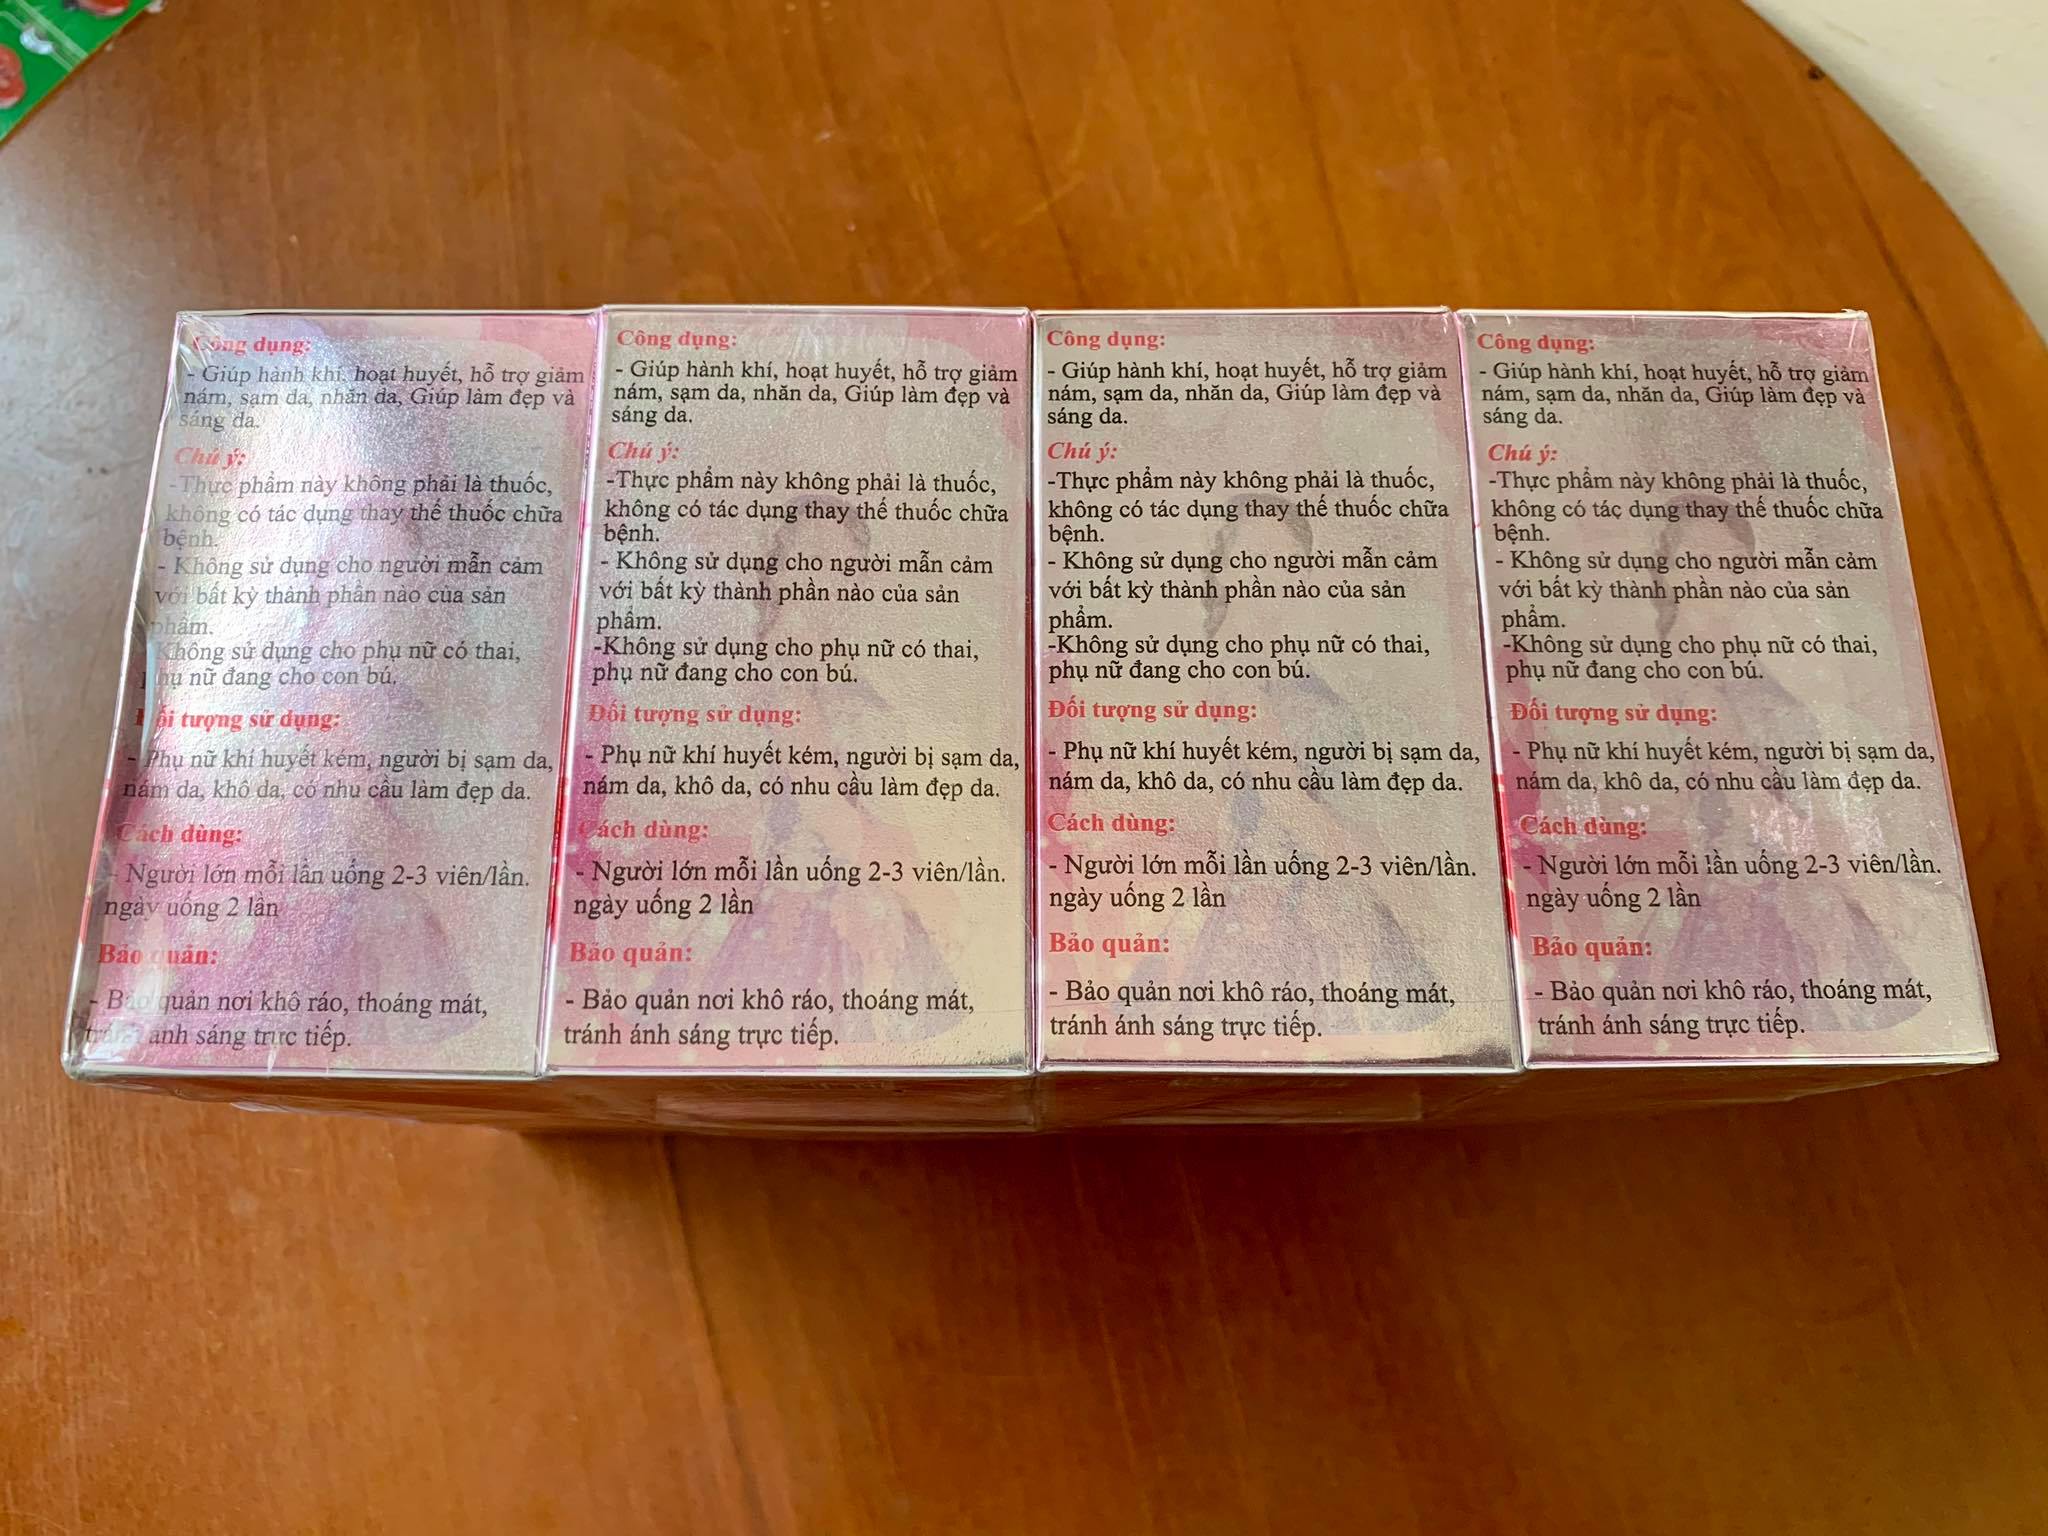 Công dụng:
- Giúp hành khí, hoạt huyết, hỗ trợ giảm
nám, sạm da, nhăn da, Giúp làm đẹp và
sáng da.
Chú ý:
-Thực phẩm này không phải là thuốc,
không có tác dụng thay thế thuốc chữa
bệnh.
- Không sử dụng cho người mẫn cảm
với bất kỳ thành phần nào của sản
phẩm.
Không sử dụng cho phụ nữ có thai,
phụ nữ đang cho con bú.
Đối tượng sử dụng:
- Phụ nữ khí huyết kém, người bị sạm da,
nám da, khô da, có nhu cầu làm đẹp da.
Cách dùng:
- Người lớn mỗi lần uống 2-3 viên/lần.
ngày uống 2 lần
Bảo quản:
- Bảo quản nơi khô ráo, thoáng mát,
tránh ánh sáng trực tiếp.
Công dụng:
- Giúp hành khí, hoạt huyết, hỗ trợ giảm
nám, sạm da, nhăn da, Giúp làm đẹp và
sáng da.
Chú ý:
-Thực phẩm này không phải là thuốc,
không có tác dụng thay thế thuốc chữa
bệnh.
- Không sử dụng cho người mẫn cảm
với bất kỳ thành phần nào của sản
phẩm.
-Không sử dụng cho phụ nữ có thai,
phụ nữ đang cho con bú.
Đối tượng sử dụng:
- Phụ nữ khí huyết kém, người bị sạm da,
nám da, khô da, có nhu cầu làm đẹp da.
Cách dùng:
- Người lớn mỗi lần uống 2-3 viên/lần.
ngày uống 2 lần
Bảo quản:
- Bảo quản nơi khô ráo, thoáng mát,
tránh ánh sáng trực tiếp.
Công dụng:
- Giúp hành khí, hoạt huyết, hỗ trợ giảm
nám, sạm da, nhăn da, Giúp làm đẹp và
sáng da.
Chú ý:
-Thực phẩm này không phải là thuốc,
không có tác dụng thay thế thuốc chữa
bệnh.
- Không sử dụng cho người mẫn cảm
với bất kỳ thành phần nào của sản
phẩm.
-Không sử dụng cho phụ nữ có thai,
phụ nữ đang cho con bú.
Đối tượng sử dụng:
- Phụ nữ khí huyết kém, người bị sạm da,
nám da, khô da, có nhu cầu làm đẹp da.
Cách dùng:
- Người lớn mỗi lần uống 2-3 viên/lần.
ngày uống 2 lần
Bảo quản:
- Bảo quản nơi khô ráo, thoáng mát,
tránh ánh sáng trực tiếp.
Công dụng:
- Giúp hành khí, hoạt huyết, hỗ trợ giảm
nám, sạm da, nhăn da, Giúp làm đẹp và
sáng da.
Chú ý:
-Thực phẩm này không phải là thuốc,
không có tác dụng thay thế thuốc chữa
bệnh.
- Không sử dụng cho người mẫn cảm
với bất kỳ thành phần nào của sản
phẩm.
-Không sử dụng cho phụ nữ có thai,
phụ nữ đang cho con bú.
Đối tượng sử dụng:
- Phụ nữ khí huyết kém, người bị sạm da,
nám da, khô da, có nhu cầu làm đẹp da.
Cách dùng:
- Người lớn mỗi lần uống 2-3 viên/lần.
ngày uống 2 lần
Bảo quản:
- Bảo quản nơi khô ráo, thoáng mát,
tránh ánh sáng trực tiếp.